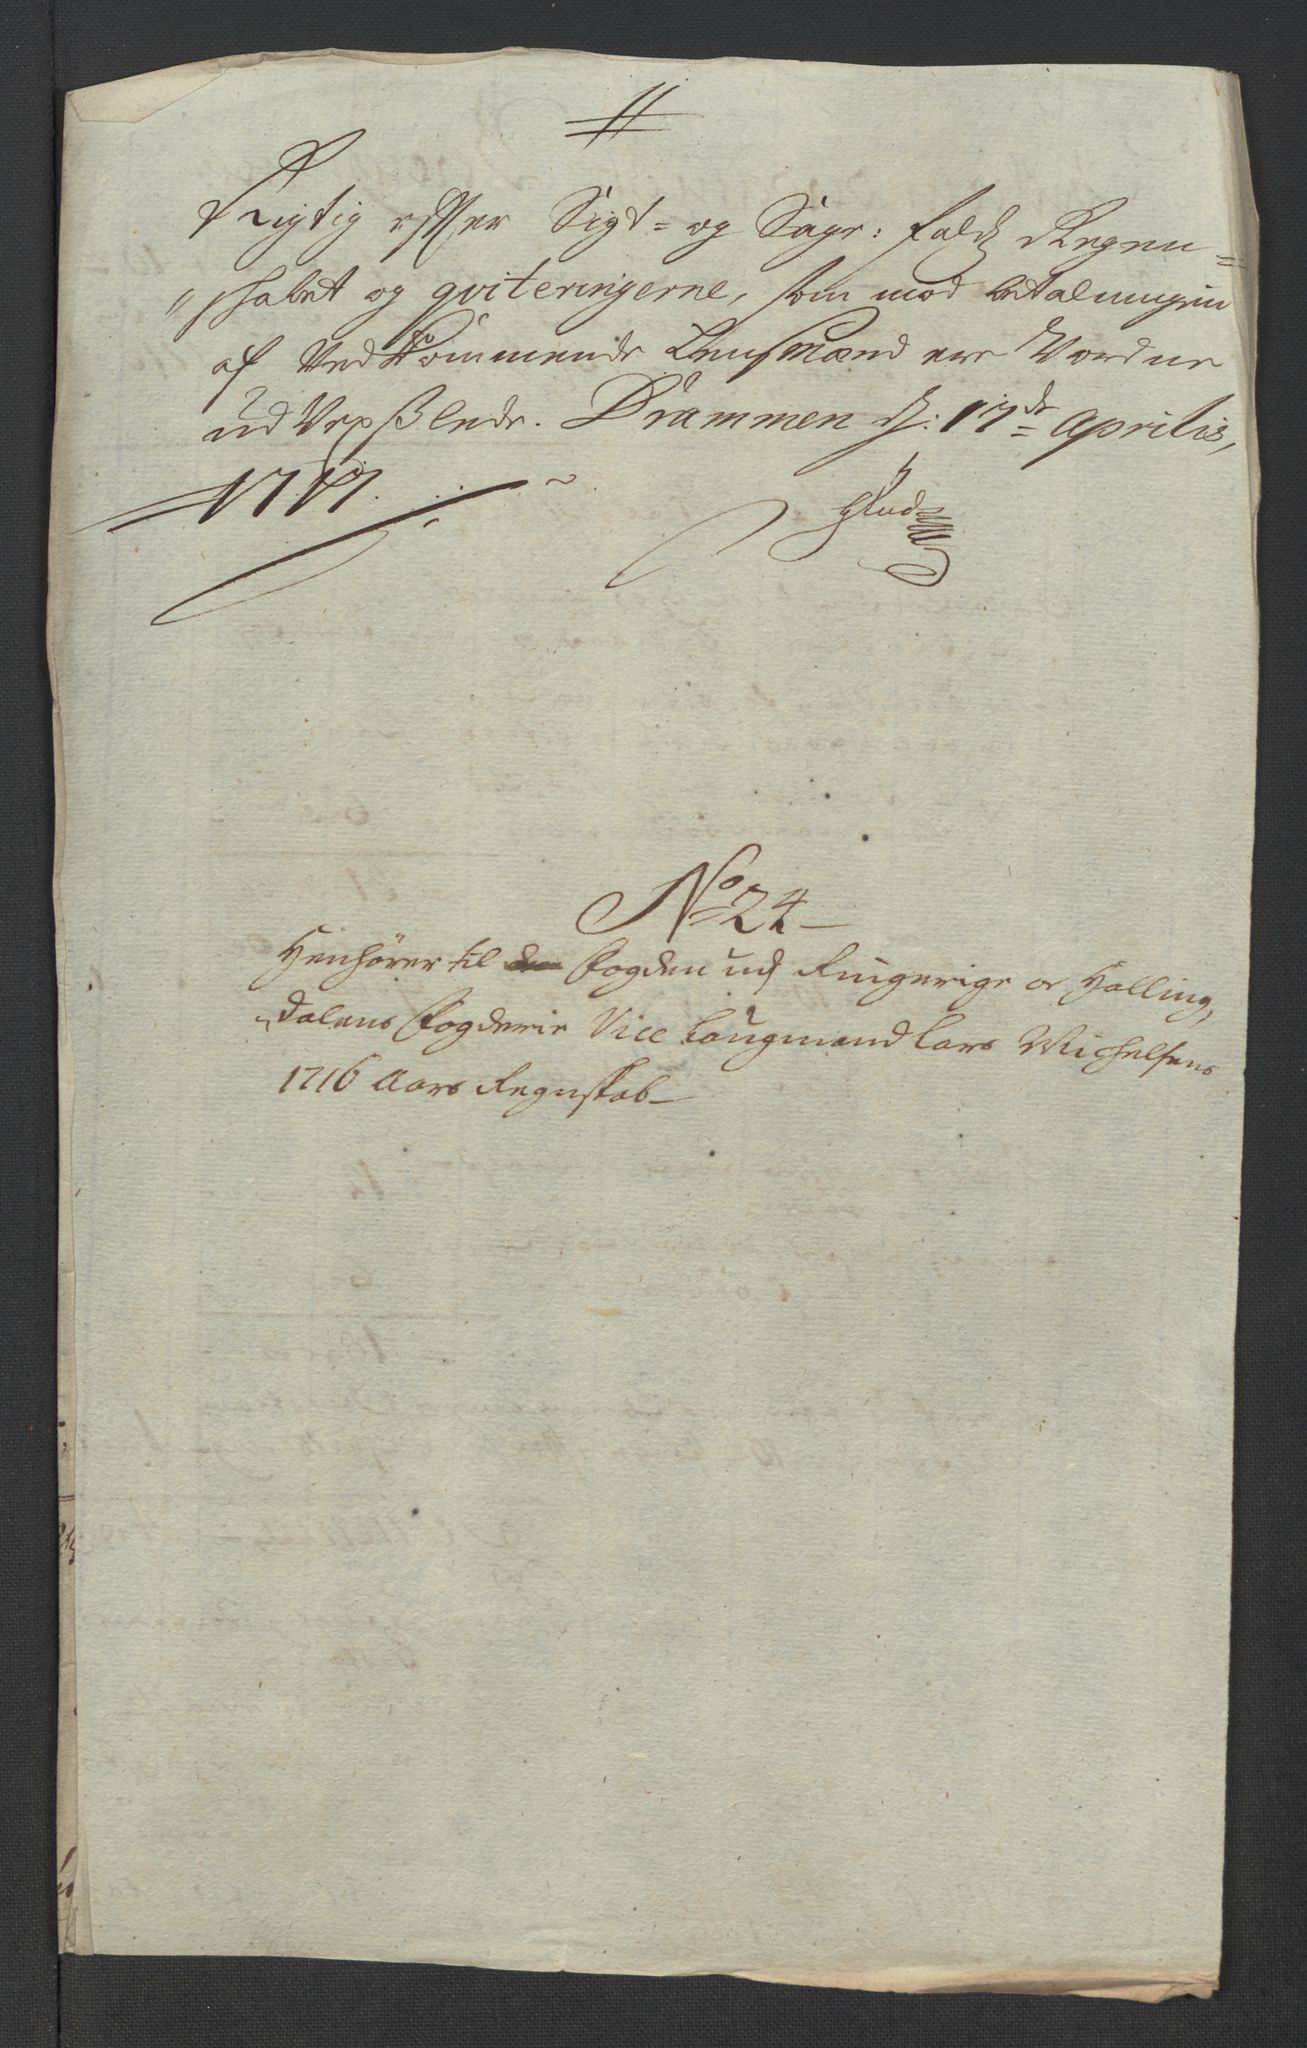 Rigtig efter Sigt- og Sage: falds Regen-
skabet og qviteringerne, som mod betalningen
af Vedkommende Lensmænd ere Vordne
udVexslede. Drammen d: 17de Aprilis,
1717.
No 24
Henhører til den Fogden udj Ringerige oc Halling,
dalens Fogderie Vice Laugmand Lars Michelsens
1716 Aars Regnskab